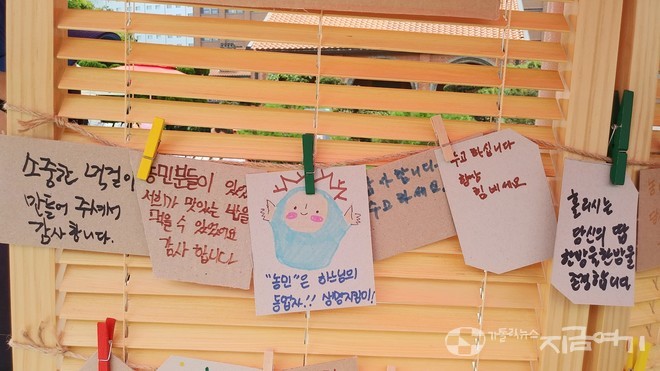 소중한 먹걸이
만들어 주셔서
감사합니다.
농민분들이 있었
저희가 맛있는 밥을
먹을 수 있었어요
감사 합니다
"농민"은 하느님의
동업자!! 생명지킴이!
감사합니다
수고하세요
수고 하십니다
항상
힘내세요
흘리시는
당신의 땀
한방울한방울
존경합니다.
가톨릭뉴스
지금여기